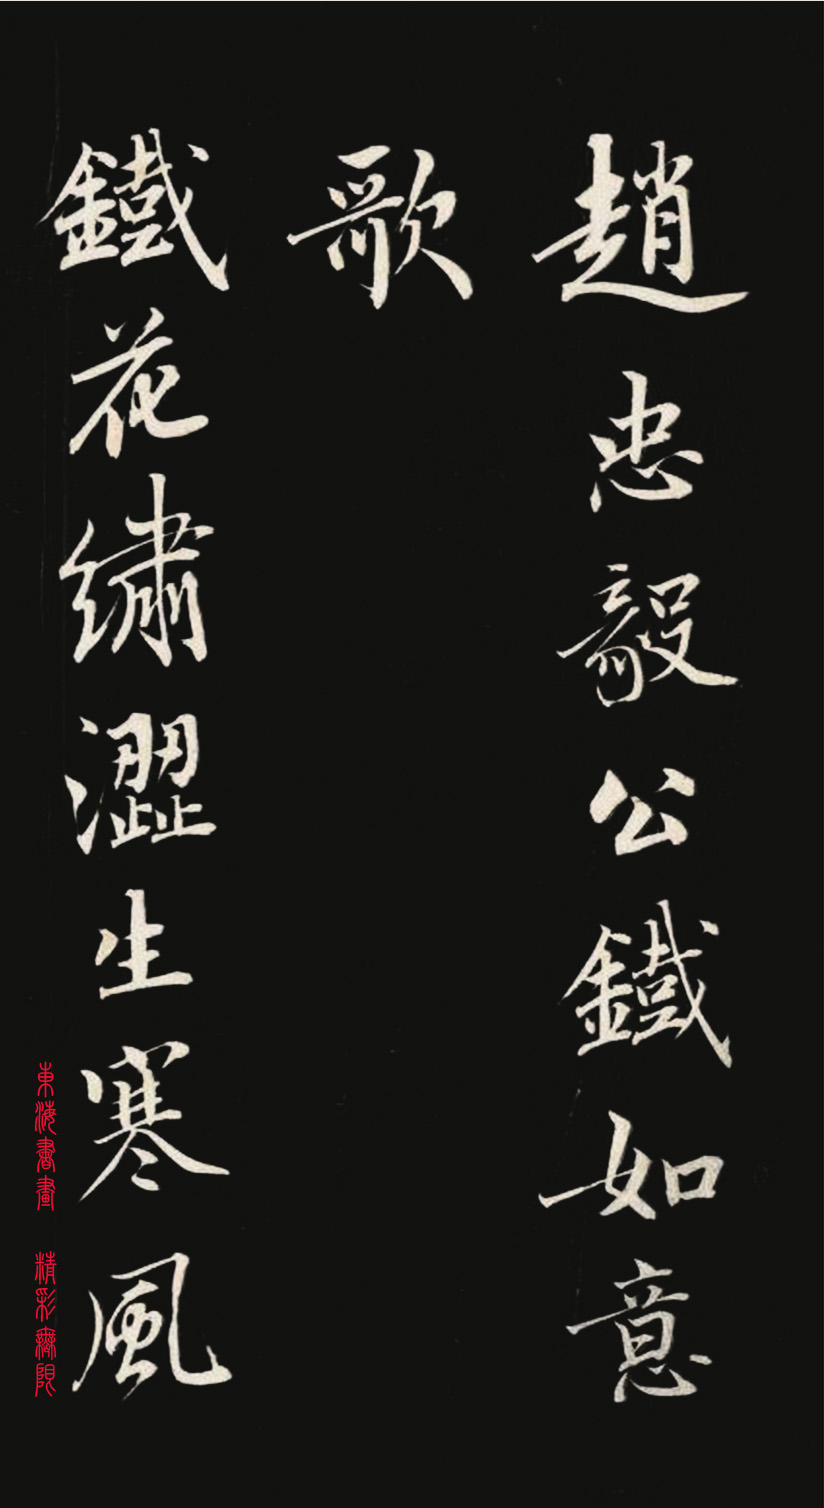 趙忠毅公鐵如意
歌
鐵花繡澀生寒風
東海書畫 精彩無限